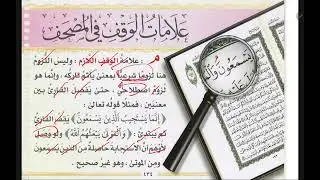 علامات الوقف في المصحف
م : علامة الوقف اللازم : وليس اللزوم
هنا لزوما شرعيا بمعنى يأثم تاركه . وإنما هو
لزوم اصطلاحي حتى يفصل القارئ بين
معنيين ، فمثلا قوله تعالى
إنما يستجيب الذين يسمعون يقف القارئ
ثم يبتدئ : والموتى يبعثهم الله ولو وصل
لأوهم أن الاستجابة حاصلة من الذين يسمعون
ومن الموتى ، وهو غير صحيح .
يسمعون والم